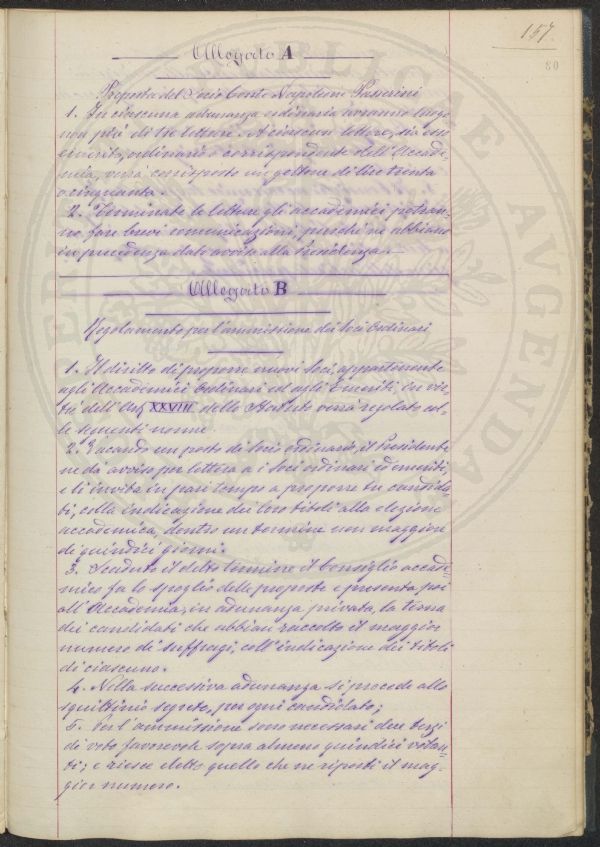 157
80
Allegato A
Proposta del Socio Conte Napoleone Passerini
1. In ciascuna adunanza ordinaria avranno luogo
non più di tre letture. A ciascun lettore, sia esso
emerito, ordinario o corrispondente dell'Accade-
mia, verrà corrisposto un gettone di lire trenta
o cinquanta.
2. Terminate le letture gli accademici potran-
no fare brevi comunicazioni, purché ne abbiano
in precedenza dato avviso alla Presidenza.
Allegato B
Regolamento per l'ammissione dei Soci Ordinari
1. Il diritto di proporre nuovi Soci, appartenente
agli Accademici Ordinari ed agli Emeriti, in vir-
tù dell'Art. XXVIII dello Statuto verrà regolato col-
le seguenti norme
2. Vacando un posto di Socio ordinario, il Presidente
ne dà avviso per lettera a i Soci ordinari ed emeriti,
e li invita in pari tempo a proporre tre candida-
ti, colla indicazione dei loro titoli alla elezione
accademica, dentro un termine non maggiore
di quindici giorni.
3. Scaduto il detto termine il Consiglio accade-
mico fa lo spoglio delle proposte e presenta poi
all'Accademia, in adunanza privata, la terna
dei candidati che abbian raccolto il maggior
numero di suffragi, coll'indicazione dei titoli
di ciascuno.
4. Nella successiva adunanza si procede allo
squittinio segreto, per ogni candidato;
5. Per l'ammissione sono necessari due terzi
di voto favorevole sopra almeno quindici votan-
ti; e riesce eletto quello che ne riporti il mag-
gior numero.